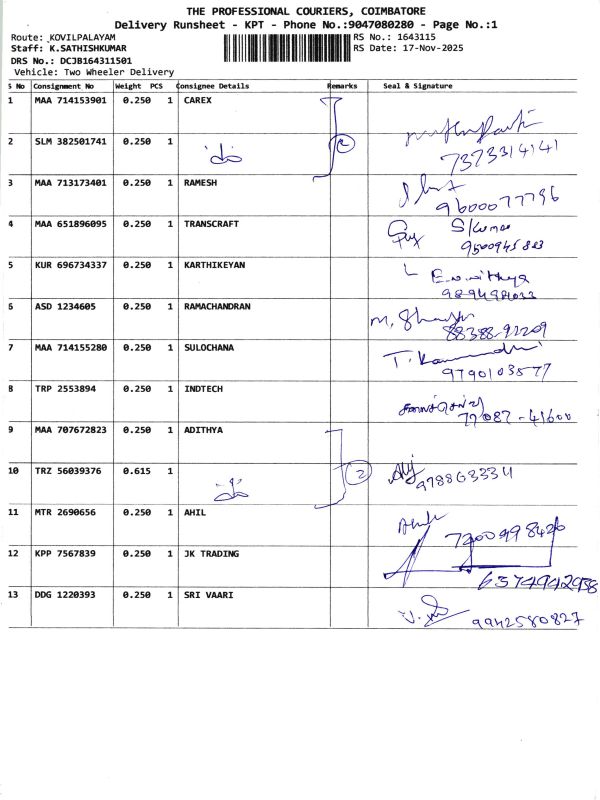 THE PROFESSIONAL COURIERS, COIMBATORE
Delivery Runsheet - KPT - Phone No.:9047080280 - Page No.:1
Route: KOVILPALAYAM
RS No.: 1643115
Staff: K.SATHISHKUMAR
RS Date: 17-Nov-2025
DRS No.: DCJB164311501
Vehicle: Two Wheeler Delivery
S No Consignment No Weight PCS Consignee Details Remarks Seal & Signature
1 MAA 714153901 0.250 1 CAREX
2 SLM 382501741 0.250 1 2
7373314141
3 MAA 713173401 0.250 1 RAMESH
9600077796
4 MAA 651896095 0.250 1 TRANSCRAFT
5 KUR 696734337 0.250 1 KARTHIKEYAN
6 ASD 1234605 0.250 1 RAMACHANDRAN
88388-92209
7 MAA 714155280 0.250 1 SULOCHANA
9790103577
8 TRP 2553894 0.250 1 INDTECH
77087-41600
9 MAA 707672823 0.250 1 ADITHYA
10 TRZ 56039376 0.615 1 2
9788633311
11 MTR 2690656 0.250 1 AHIL
7200998420
12 KPP 7567839 0.250 1 JK TRADING
6374942958
13 DDG 1220393 0.250 1 SRI VAARI
9942580827